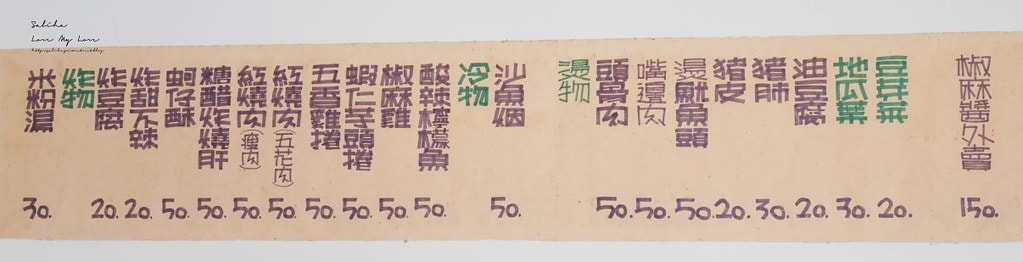 Saliha
米粉湯 30.
炸物
炸豆腐 20.
炸甜不辣 20.
蚵仔酥 50.
糖醋炸燒肝 50.
紅燒肉(瘦肉) 50.
紅燒肉(五花肉) 50.
五香雞捲 50.
蝦仁芋頭捲 50.
椒麻雞 50.
酸辣檸檬魚 50.
冷物
沙魚烟 50.
燙物
頭骨肉 50.
嘴邊肉 50.
燙魷魚頭 50.
豬皮 20.
豬肺 30.
油豆腐 20.
地瓜葉 30.
豆芽菜 20.
椒麻醬外賣 150.